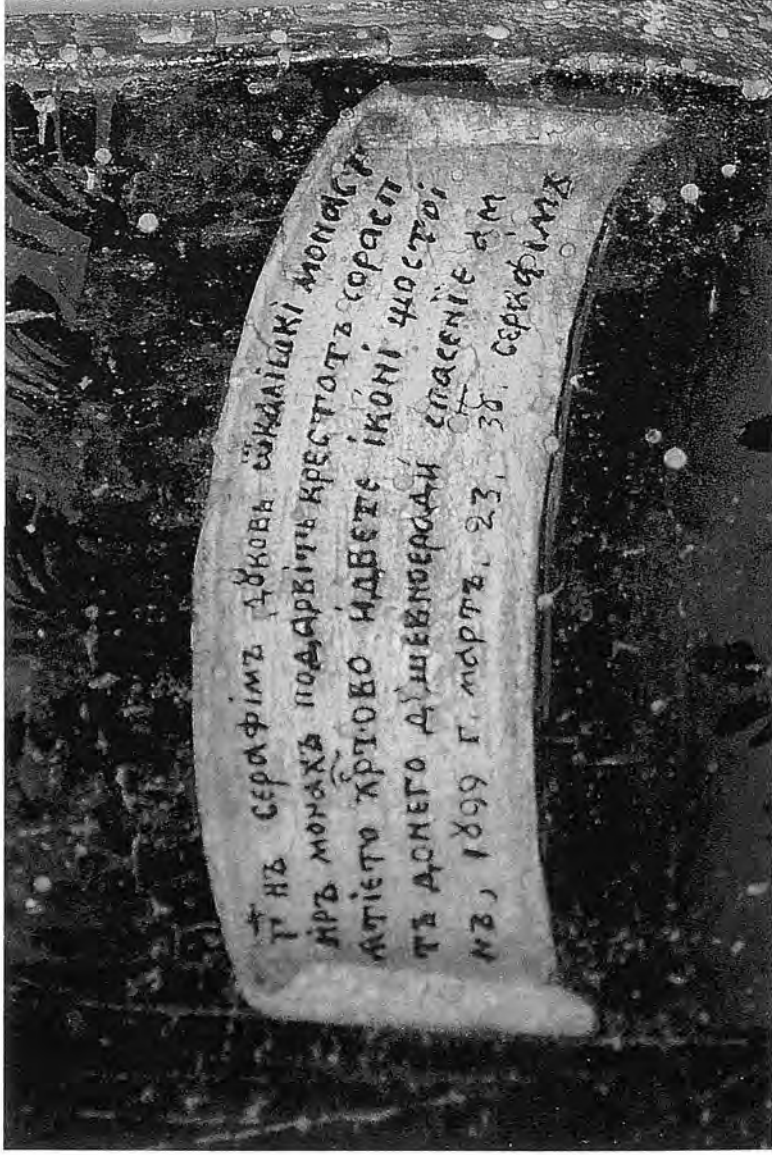 Г҃НЪ СЕРАФІМЪ ДꙊКОВЬ СОКАЛІѠКІ МОНАСТ
ИРЪ МОНАХЪ ПОДАРВІТЬ КРЕСТОТЪ СОРАСП
АТІЕТО ХР҃ТОВО ИДВЕТЕ ІКОНІ ЩОСТОІ
ТЪ ДОНЕГО ДꙊШЕВНОЕРАДИ СПАСЕНІЕ АМ
НЪ, 1899 Г. МАРТЪ. 23. СЕРАФІМЪ